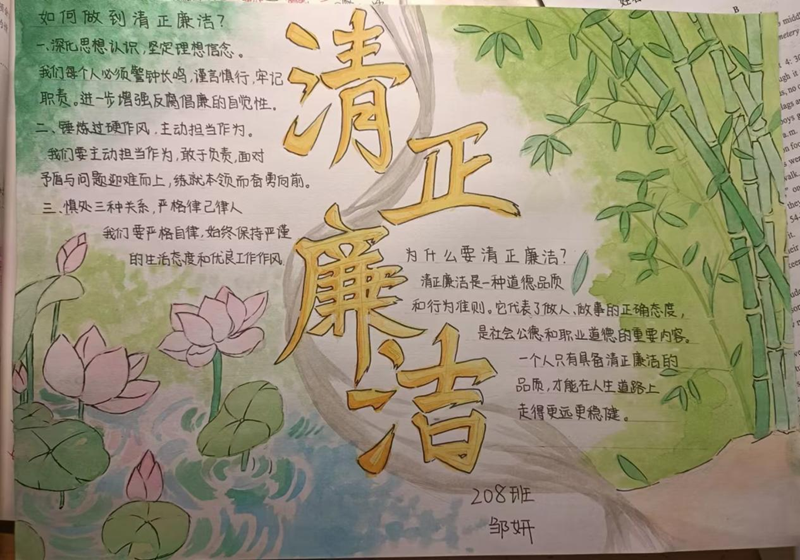 如何做到清正廉洁？
一、深化思想认识，坚定理想信念。
我们每个人必须警钟长鸣，谨言慎行，牢记
职责。进一步增强反腐倡廉的自觉性。
二、锤炼过硬作风，主动担当作为。
我们要主动担当作为，敢于负责，面对
矛盾与问题迎难而上，练就本领而奋勇向前。
三、慎处三种关系，严格律己律人
我们要严格自律，始终保持严谨
的生活态度和优良工作作风
清正廉洁
为什么要清正廉洁？
清正廉洁是一种道德品质
和行为准则。它代表了做人、做事的正确态度，
是社会公德和职业道德的重要内容。
一个人只有具备清正廉洁的
品质，才能在人生道路上
走得更远更稳健。
208班
邹妍